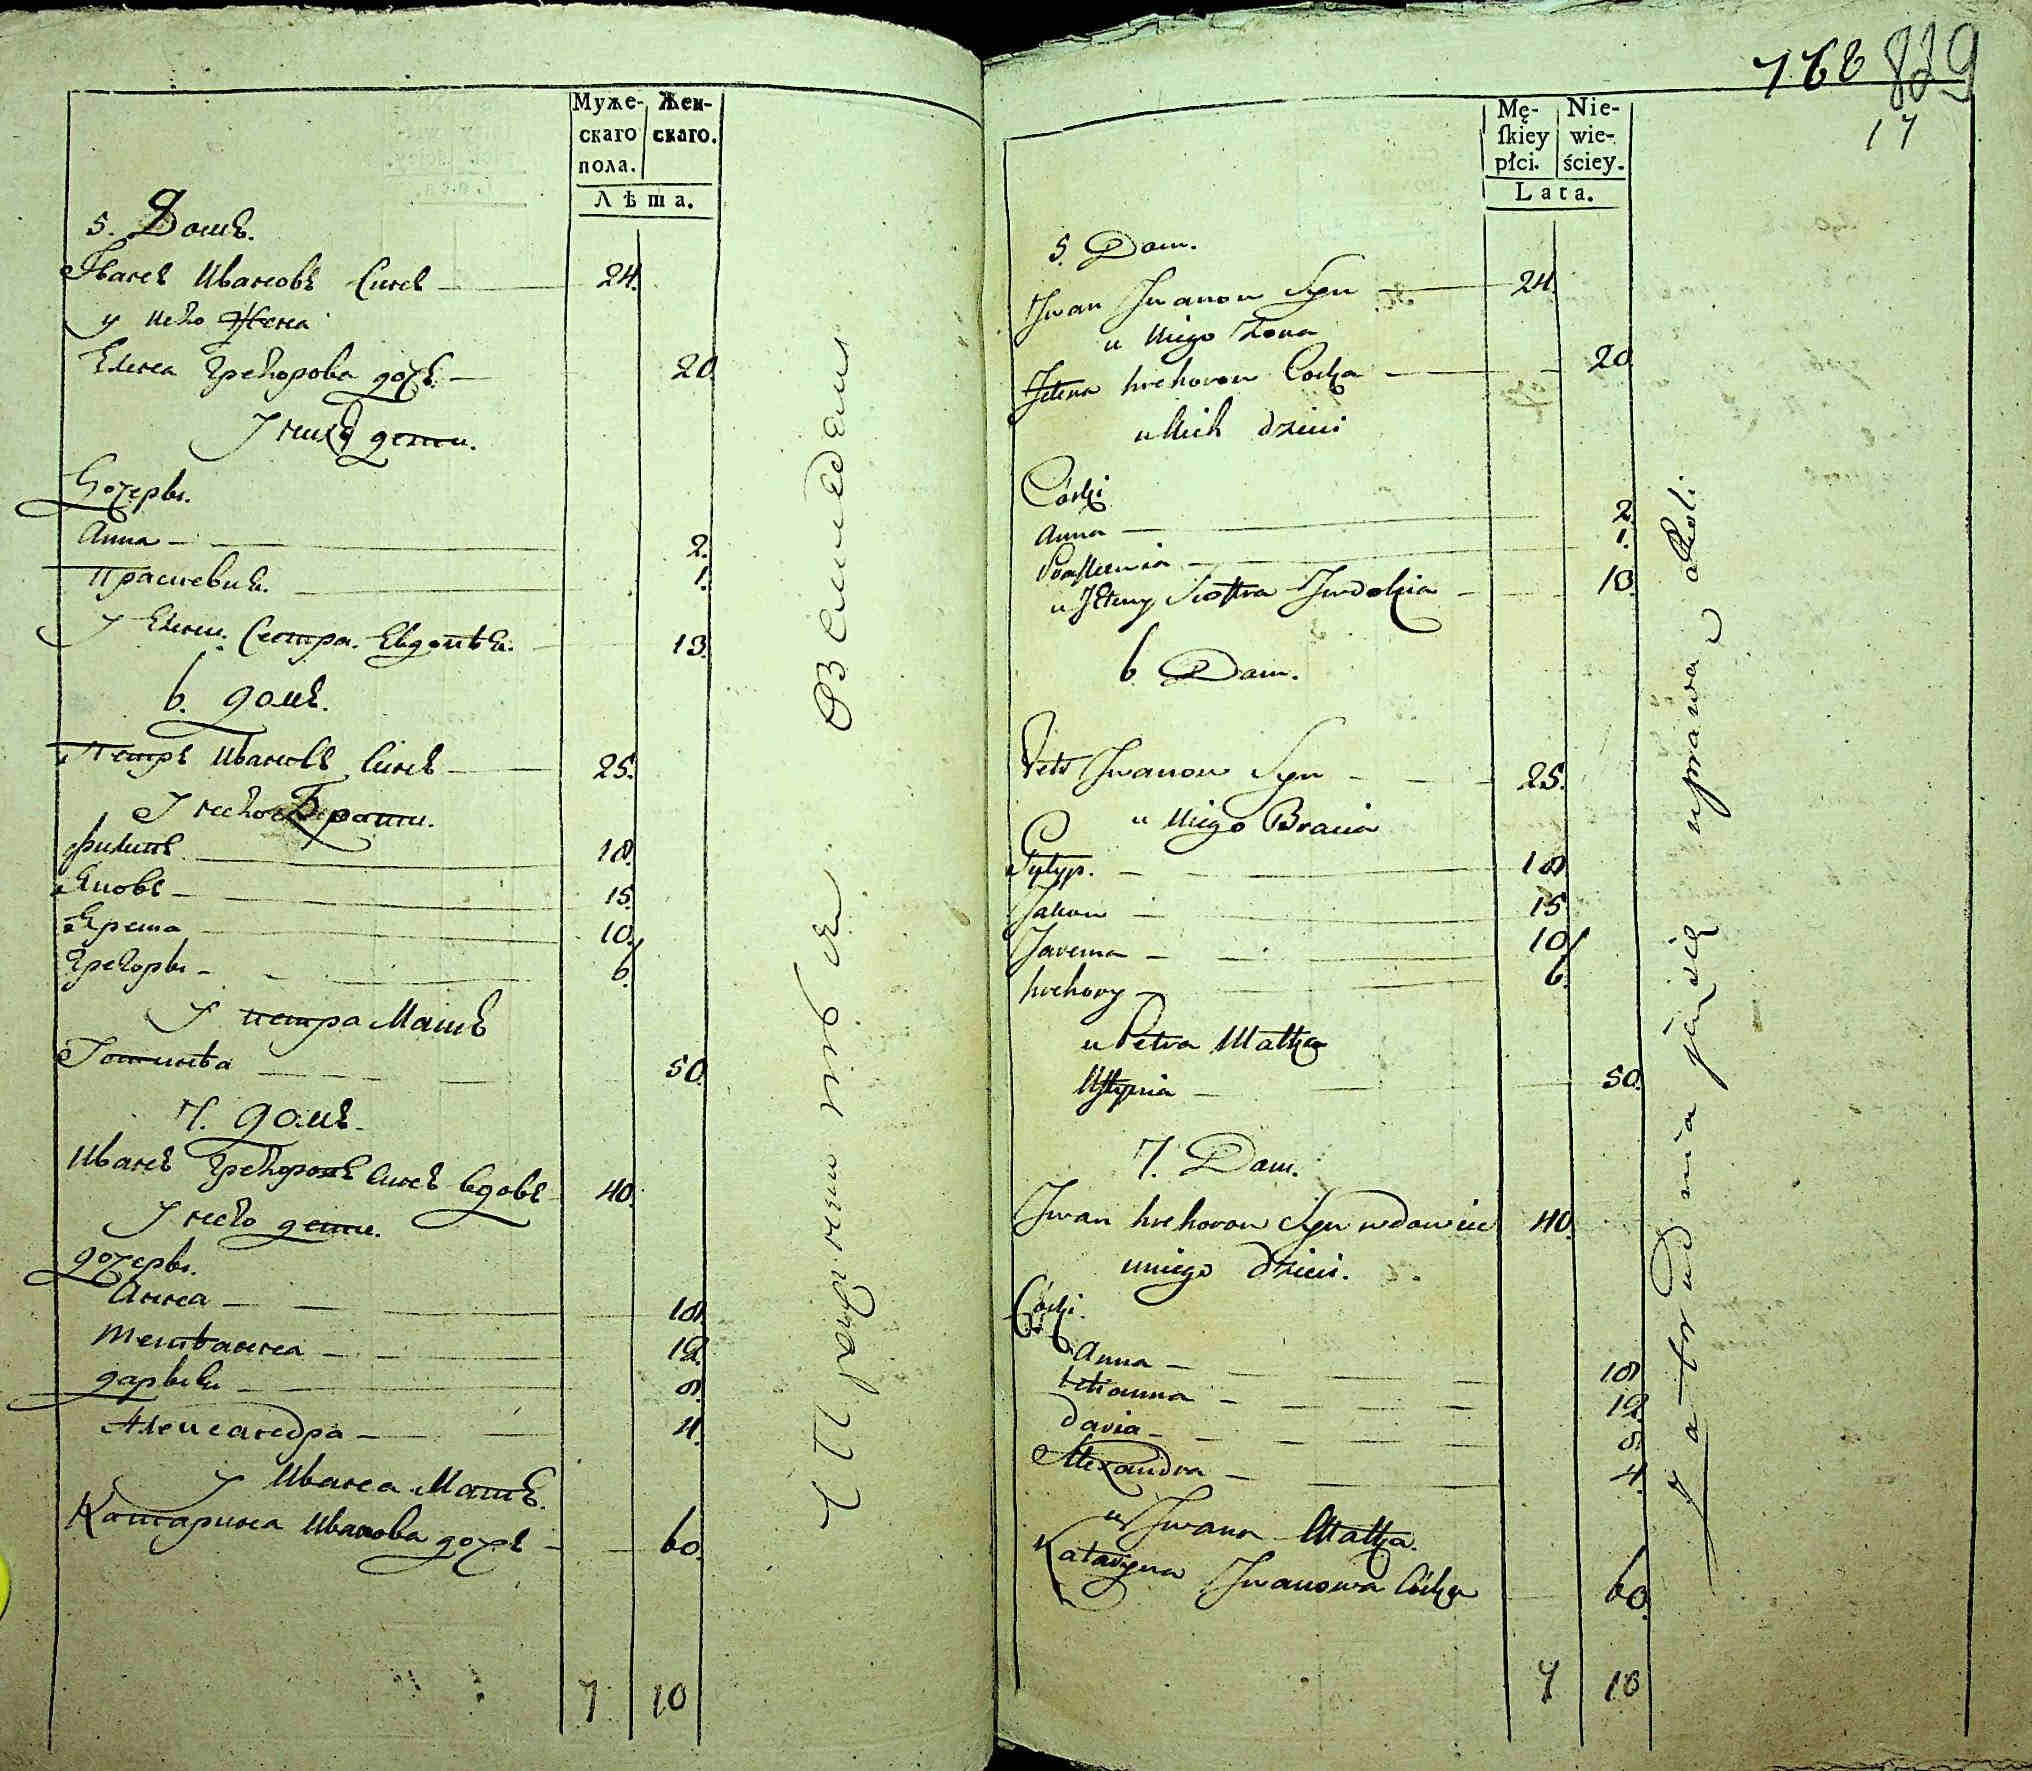 Муже-
скаго
пола.
Жен-
скаго.
Лѣта.
5. Домъ.
Іванъ Ивановъ Синъ 24.
у него Жена
Елена Грегорова дочъ 20.
У нихъ дети.
Дочеры.
Анна 2.
Прасцевия. 1.
У Елени Сестра. Евдокия. 13.
6. домъ.
Петръ Ивановъ Синъ 25.
У него Брати.
Филипъ 18.
Яковъ 15.
Ярема 10.
Грегоры 6.
У петра Мать
50.
7. домъ.
Иванъ Грегоровъ Синъ вдовъ 40.
У него дети.
дочеры.
Анна 18.
Тетванна 12.
дарыя 8.
Александра 4.
У Ивана Мать.
Катарина Иванова дочъ 60.
7 10
Упражняются в Земледелии
768 829
17
Mę-
ſkiey
płci.
Nie-
wie-
ściey.
Lata.
5. Dom.
Jwan Jwanow Syn 24.
u Niego Żona
Jelena hrehorow Corka 20.
u Nich dzieci
Córki
Anna 2.
1.
u Jeleny Siostra Jwdokia 13.
6 Dom.
Petr Jwanow Syn 25.
u Niego Bracia
Pylyp. 18
Jakow 15
Jarema 10
hrehory 6.
u Petra Matka
Ustynia 50.
7. Dom.
Jwan hrehorow Syn wdowiec 40.
u niego dzieci.
Córki.
Anna 18
tetianna 12.
daria 8.
Alexandra 4.
u Jwana Matka.
Kataryna Jwanowa Córka 60.
7 10
Zatrudnia ją się uprawą Roli